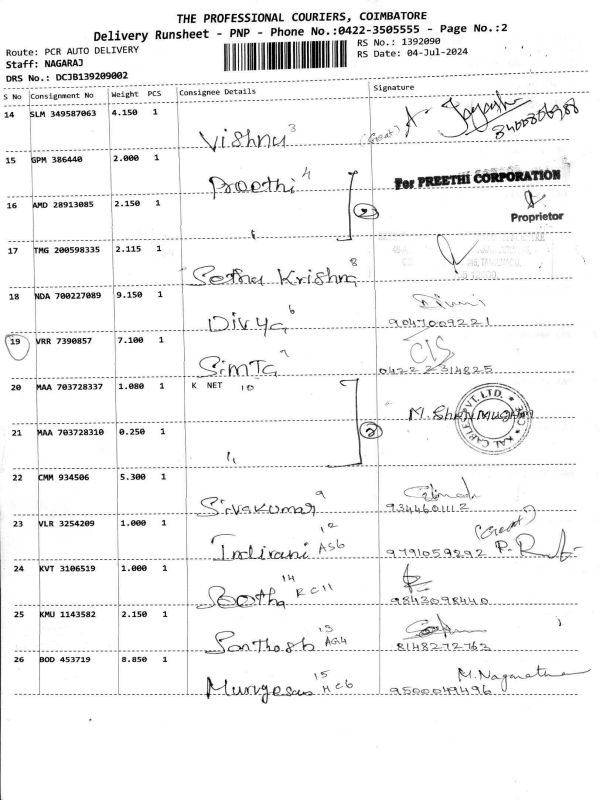 THE PROFESSIONAL COURIERS, COIMBATORE
Delivery Runsheet - PNP - Phone No.:0422-3505555 - Page No.:2
Route: PCR AUTO DELIVERY
RS No.: 1392090
Staff: NAGARAJ
RS Date: 04-Jul-2024
DRS No.: DCJB139209002
S No Consignment No Weight PCS Consignee Details Signature
14 SLM 349587063 4.150 1
Vishnu 3
15 GPM 386440 2.000 1
Preethi 4
For PREETHI CORPORATION
16 AMD 28913085 2.150 1
2
Proprietor
17 TMG 200598335 2.115 1
Sethu Krishna 8
18 NDA 700227089 9.150 1
Divya 6
9047009221
19 VRR 7390857 7.100 1
SimTa 7
CIS
0422 2314825
20 MAA 703728337 1.080 1 K NET 10
M. Shanmugam
KAL CABLES PVT. LTD.
21 MAA 703728310 0.250 1
2
22 CMM 934506 5.300 1
Sivakumar 9
9344601112
23 VLR 3254209 1.000 1
Indirani 12 AS6
9791059292
24 KVT 3106519 1.000 1
14 RC11
9843098440
25 KMU 1143582 2.150 1
Santhosh 13 AG4
8148272763
26 BOD 453719 8.850 1
Murugesan 15 HC6
M. Nagaratna
9500049496